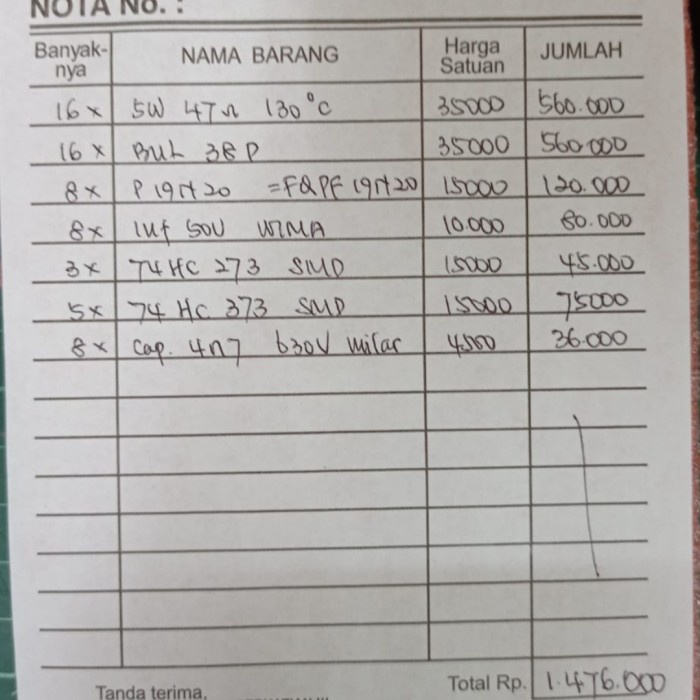 NOTA No. :
Banyak-nya NAMA BARANG Harga Satuan JUMLAH
16 x 5W 47Ω 130°C 35000 560.000
16 x BUL 38 P 35000 560.000
8 x P 19N20 = FQPF 19N20 15000 120.000
8x 1uf 50V WIMA 10.000 80.000
3x 74 HC 273 SMD 15000 45.000
5x 74 HC 373 SMD 15000 75000
8x cap. 4n7 630V milar 4500 36.000
Total Rp. 1.476.000
Tanda terima,